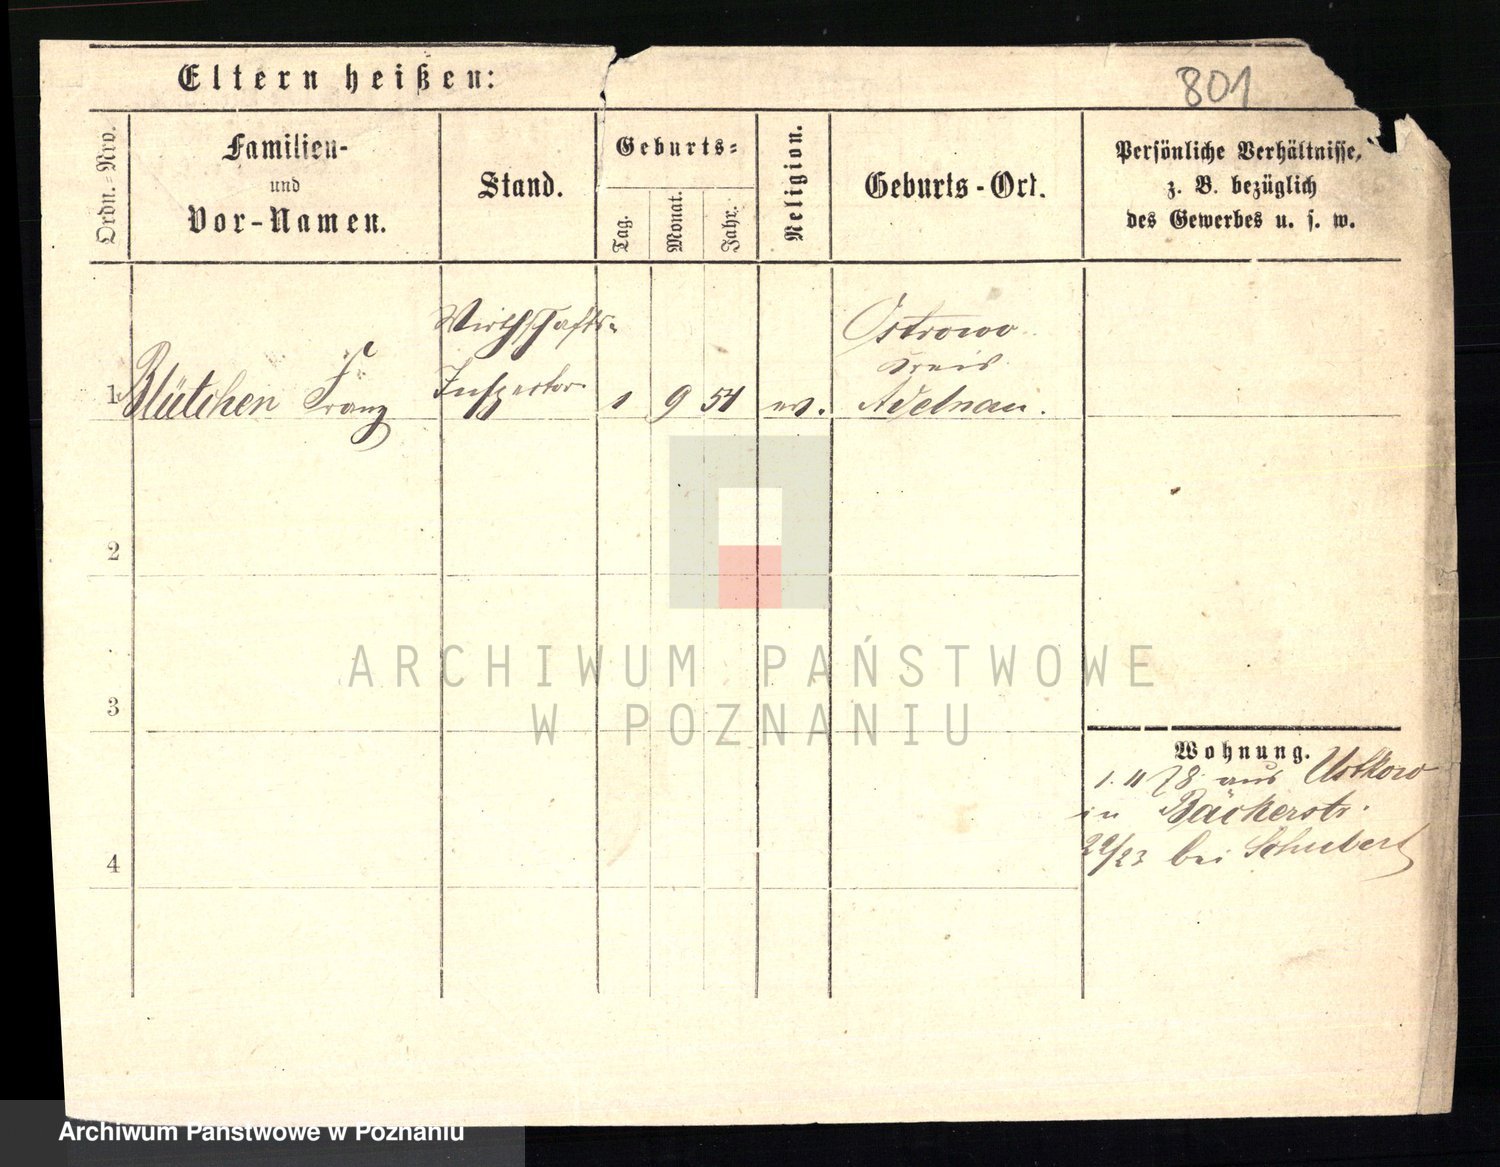 Eltern heißen:
801
Ordn.=Nro.
Familien-
und
Vor-Namen.
Stand.
Geburts=
Tag.
Monat.
Jahr.
Religion.
Geburts-Ort.
Persönliche Verhältnisse,
z. B. bezüglich
des Gewerbes u. s. w.
1
Blütchen Franz
Wirthschafts-
Inspector
1
9
54
ev.
Ostrowo
Kreis
Adelnau.
2
3
4
Wohnung.
1. 11 78 aus Ustkow
in Bäckerstr.
22/23 bei Schubert
ARCHIWUM PAŃSTWOWE
W POZNANIU
Archiwum Państwowe w Poznaniu